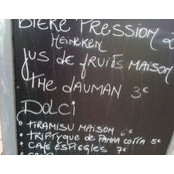 BIERE PRESSION
HEINEKEN
JUS de FRUITS MAISON
THE DAUMAN 3€
DOLCI
• TIRAMISU MAISON 6€
• TRIPTYQUE de PANNA COTTA 5€
• CAFE ESPIEGLES 7€